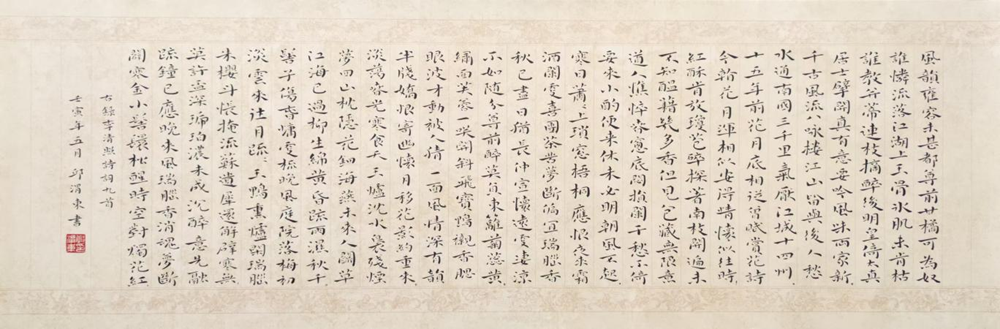 風韻雍容未甚都尊前甘橘可為奴
誰憐流落江湖上玉骨冰肌未肯枯
誰教並蒂連枝摘醉後明皇倚太真
居士擘開真有意要吟風味兩家新
千古風流八詠樓江山留與後人愁
水通南國三千里氣壓江城十四州
十五年前花月底相從曾賦賞花詩
今看花月渾相似安得情懷似往時
紅酥肯放瓊苞碎探著南枝開遍未
不知醞藉幾多香但見包藏無限意
道人憔悴春窗底悶損闌干愁不倚
要來小酌便來休未必明朝風不起
寒日蕭蕭上瑣窗梧桐應恨夜來霜
酒闌更喜團茶苦夢斷偏宜瑞腦香
秋已盡日猶長仲宣懷遠更淒涼
不如隨分尊前醉莫負東籬菊蕊黃
繡面芙蓉一笑開斜飛寶鴨襯香腮
眼波才動被人猜一面風情深有韻
半牋嬌恨寄幽懷月移花影約重來
淡蕩春光寒食天玉爐沈水裊殘煙
夢回山枕隱花鈿海燕未來人鬬草
江梅已過柳生綿黃昏疏雨濕秋千
髻子傷春慵更梳晚風庭院落梅初
淡雲來往月疏疏玉鴨熏爐閑瑞腦
朱櫻斗帳掩流蘇遺犀還解辟寒無
莫許盃深琥珀濃未成沉醉意先融
疏鐘已應晚來風瑞腦香消魂夢斷
辟寒金小髻鬟鬆醒時空對燭花紅
右錄李清照詩詞九首
壬寅年五月邱渭東書